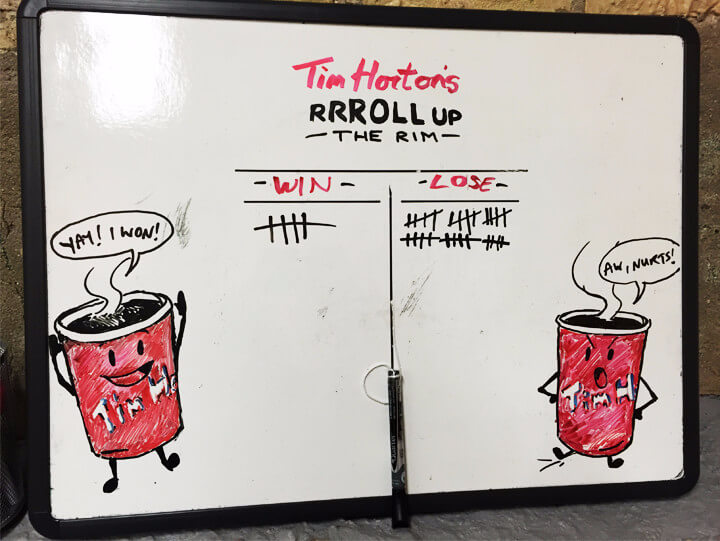 Tim Horton's
RRROLL UP
- THE RIM -
- WIN -
- LOSE -
YAY! I WON!
AW, NURTS!
Tim H
Tim H